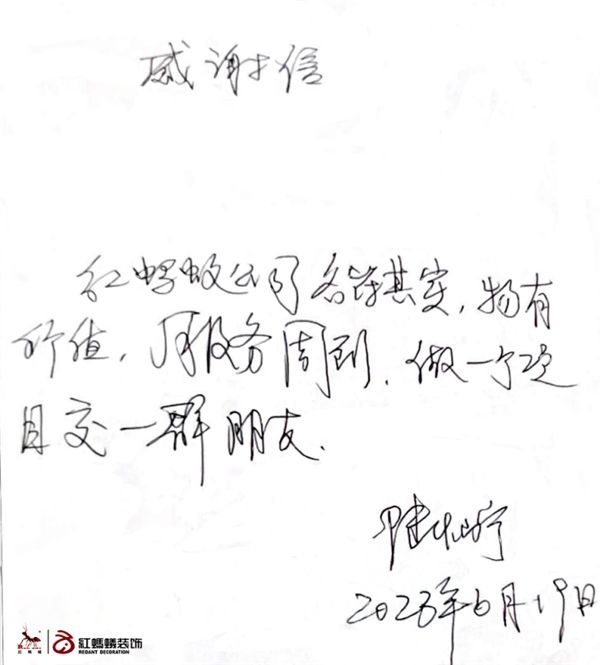 感谢信
红蚂蚁公司名符其实,物有
价值,服务周到,做一个项
目交一群朋友.
2023年6月19日
紅螞蟻装饰
REDANT DECORATION